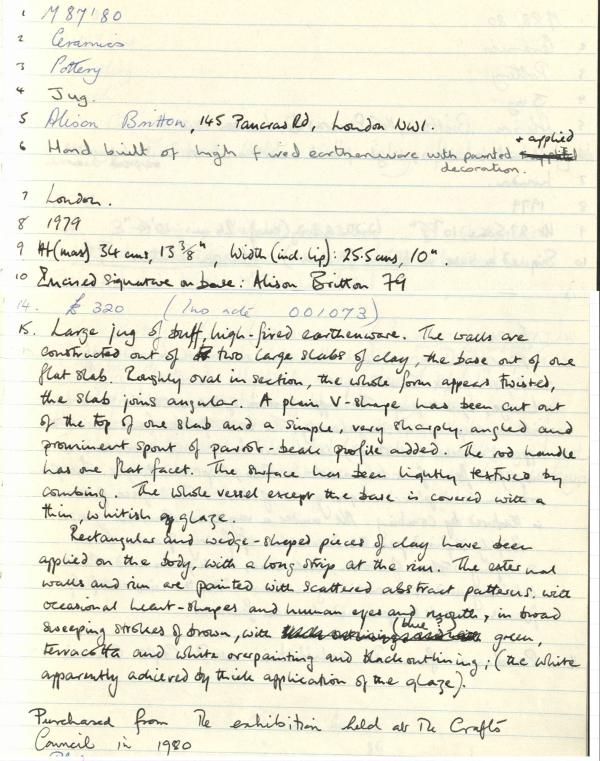 1 M 87'80
2 Ceramics
3 Pottery
4 Jug.
5 Alison Britton, 145 Pancras Rd, London NW1.
+ applied
6 Hand built of high fired earthenware with painted + applied
decoration.
7 London.
8 1979
9 Ht (max) 34 cms, 13 3/8", Width (incl. lip): 25.5 cms, 10".
10 Encised signature on base: Alison Britton 79
14. £ 320 (Inv note 001073)
15. Large jug of buff, high-fired earthenware. The walls are
constructed out of two large slabs of clay, the base out of one
flat slab. Roughly oval in section, the whole form appears twisted,
the slab joins angular. A plain V-shape has been cut out
of the top of one slab and a simple, very sharply angled and
prominent spout of parrot-beak profile added. The rod handle
has one flat facet. The surface has been lightly textured by
combing. The whole vessel except the base is covered with a
thin, whitish glaze.
Rectangular and wedge-shaped pieces of clay have been
applied on the body, with a long strip at the rim. The external
walls and rim are painted with scattered abstract patterns, with
occasional heart-shapes and human eyes and mouth, in broad
sweeping strokes of brown, with (blue ?) green,
terracotta and white overpainting and black outlining; (the white
apparently achieved by thick application of the glaze).
Purchased from The exhibition held at The Crafts
Council in 1980